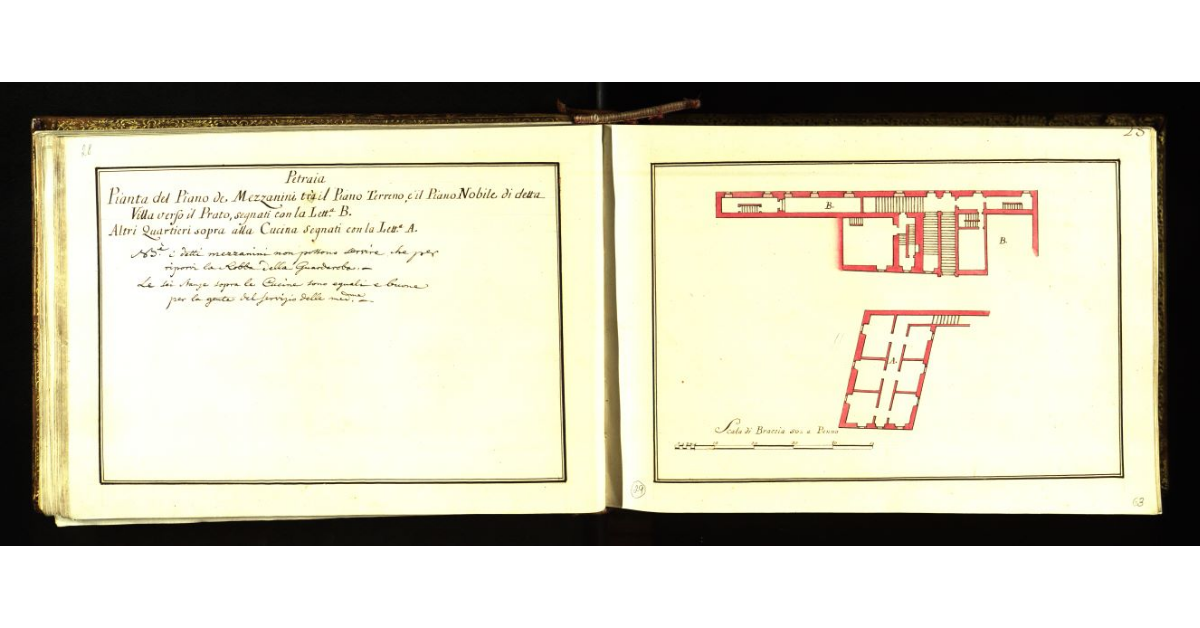 21
Petraia
Pianta del Piano de Mezzanini trà il Piano Terreno, e il Piano Nobile di detta
Villa verso il Prato, segnati con la Lett.ª B.
Altri Quartieri sopra alla Cucina segnati con la Lett.ª A.
NB.ª i detti mezzanini non possono servire che per
riporvi la Robba della Guardaroba.
Le sei stanze sopra le Cucine sono eguali e buone
per la gente del servizio delle med.me
23
B.
B.
A.
Scala di Braccia a Panno
29
63